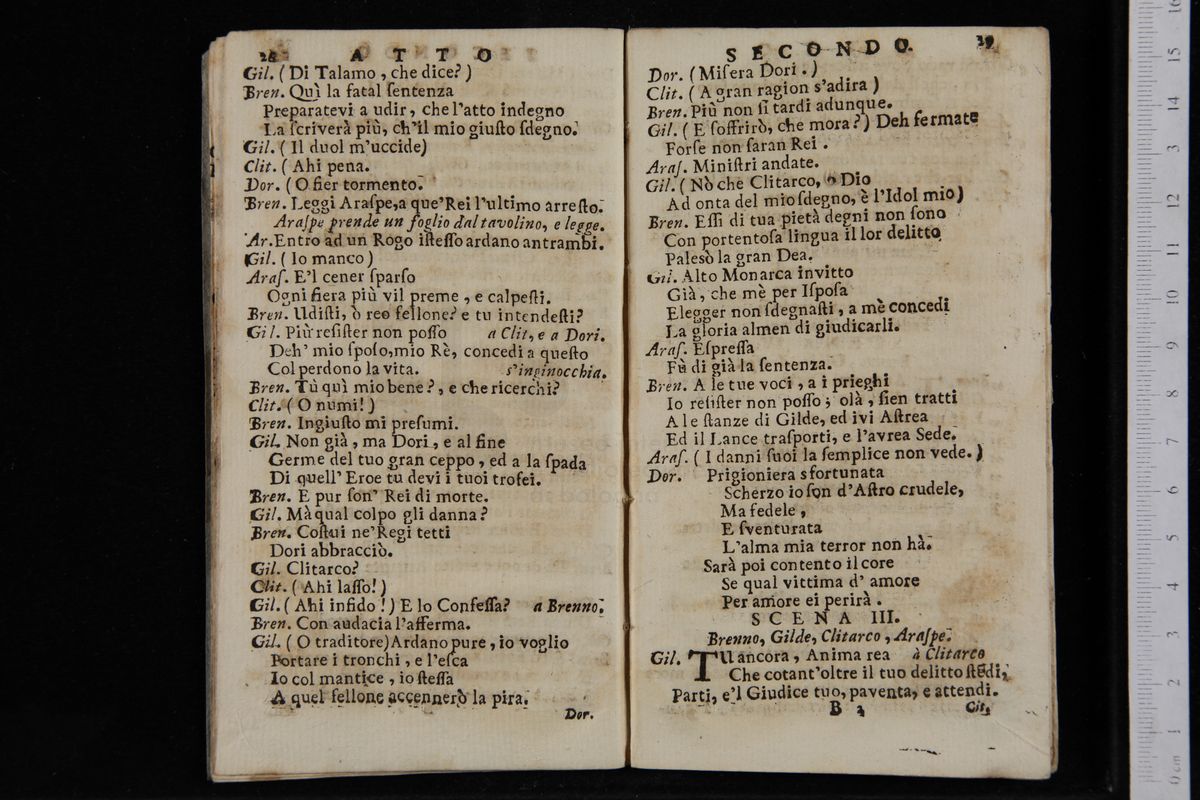 28 ATTO
Gil. (Di Talamo, che dice?)
Bren. Quì la fatal ſentenza
Preparatevi a udir, che l'atto indegno
La ſcriverà più, ch'il mio giuſto ſdegno.
Gil. (Il duol m'uccide)
Clit. (Ahi pena.
Dor. (O fier tormento.
Bren. Leggi Araſpe, a que' Rei l'ultimo arreſto.
Araſpe prende un foglio dal tavolino, e legge.
Ar. Entro ad un Rogo iſteſſo ardano antrambi.
Gil. (Io manco)
Araſ. E'l cener ſparſo
Ogni fiera più vil preme, e calpeſti.
Bren. Udiſti, ò reo fellone? e tu intendeſti?
Gil. Più reſiſter non poſſo a Clit, e a Dori.
Deh' mio ſpoſo, mio Rè, concedi a queſto
Col perdono la vita. s'inginocchia.
Bren. Tù quì mio bene?, e che ricerchi?
Clit. (O numi!)
Bren. Ingiuſto mi preſumi.
Gil. Non già, ma Dori, e al fine
Germe del tuo gran ceppo, ed a la ſpada
Di quell' Eroe tu devi i tuoi trofei.
Bren. E pur ſon' Rei di morte.
Gil. Mà qual colpo gli danna?
Bren. Coſtui ne' Regi tetti
Dori abbracciò.
Gil. Clitarco?
Clit. (Ahi laſſo!)
Gil. (Ahi infido!) E lo Confeſſa? a Brenno.
Bren. Con audacia l'afferma.
Gil. (O traditore) Ardano pure, io voglio
Portare i tronchi, e l'eſca
Io col mantice, io ſteſſa
A quel fellone accennerò la pira.
Dor.
SECONDO. 29
Dor. (Miſera Dori.)
Clit. (A gran ragion s'adira)
Bren. Più non ſi tardi adunque.
Gil. (E ſoffrirò, che mora?) Deh fermate
Forſe non ſaran Rei.
Araſ. Miniſtri andate.
Gil. (Nò che Clitarco, o Dio
Ad onta del mio ſdegno, è l'Idol mio)
Bren. Eſſi di tua pietà degni non ſono
Con portentoſa lingua il lor delitto
Palesò la gran Dea.
Gil. Alto Monarca invitto
Già, che mè per Iſpoſa
Elegger non ſdegnaſti, a mè concedi
La gloria almen di giudicarli.
Araſ. Eſpreſſa
Fù di già la ſentenza.
Bren. A le tue voci, a i prieghi
Io reſiſter non poſſo; olà, ſien tratti
A le ſtanze di Gilde, ed ivi Aſtrea
Ed il Lance traſporti, e l'avrea Sede.
Araſ. (I danni ſuoi la ſemplice non vede.)
Dor. Prigioniera sfortunata
Scherzo io ſon d'Aſtro crudele,
Ma fedele,
E ſventurata
L'alma mia terror non hà.
Sarà poi contento il core
Se qual vittima d' amore
Per amore ei perirà.
SCENA III.
Brenno, Gilde, Clitarco, Araſpe.
Gil. TU ancora, Anima rea à Clitarco
Che cotant'oltre il tuo delitto ſtēdi,
Parti, e'l Giudice tuo, paventa, e attendi.
B 2 Cit.